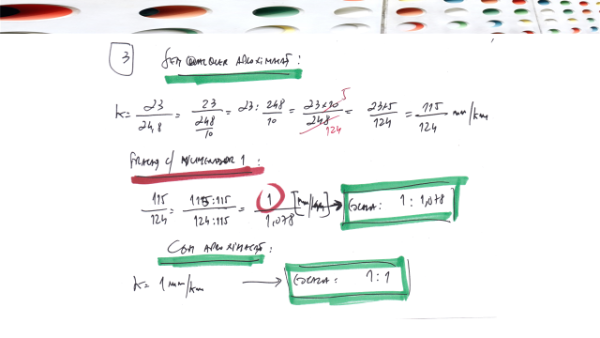 3 SEM QUALQUER APROXIMAÇÃO:
k = 23/24,8 = 23/(248/10) = 23 : 248/10 = 23x10/248 = 23x5/124 = 115/124 mm/km
5
124
FRAÇÃO C/ NUMERADOR 1:
115/124 = 115:115/124:115 = 1/1,078 [mm/km] → ESCALA: 1 : 1,078
COM APROXIMAÇÃO:
k = 1 mm/km → ESCALA: 1 : 1